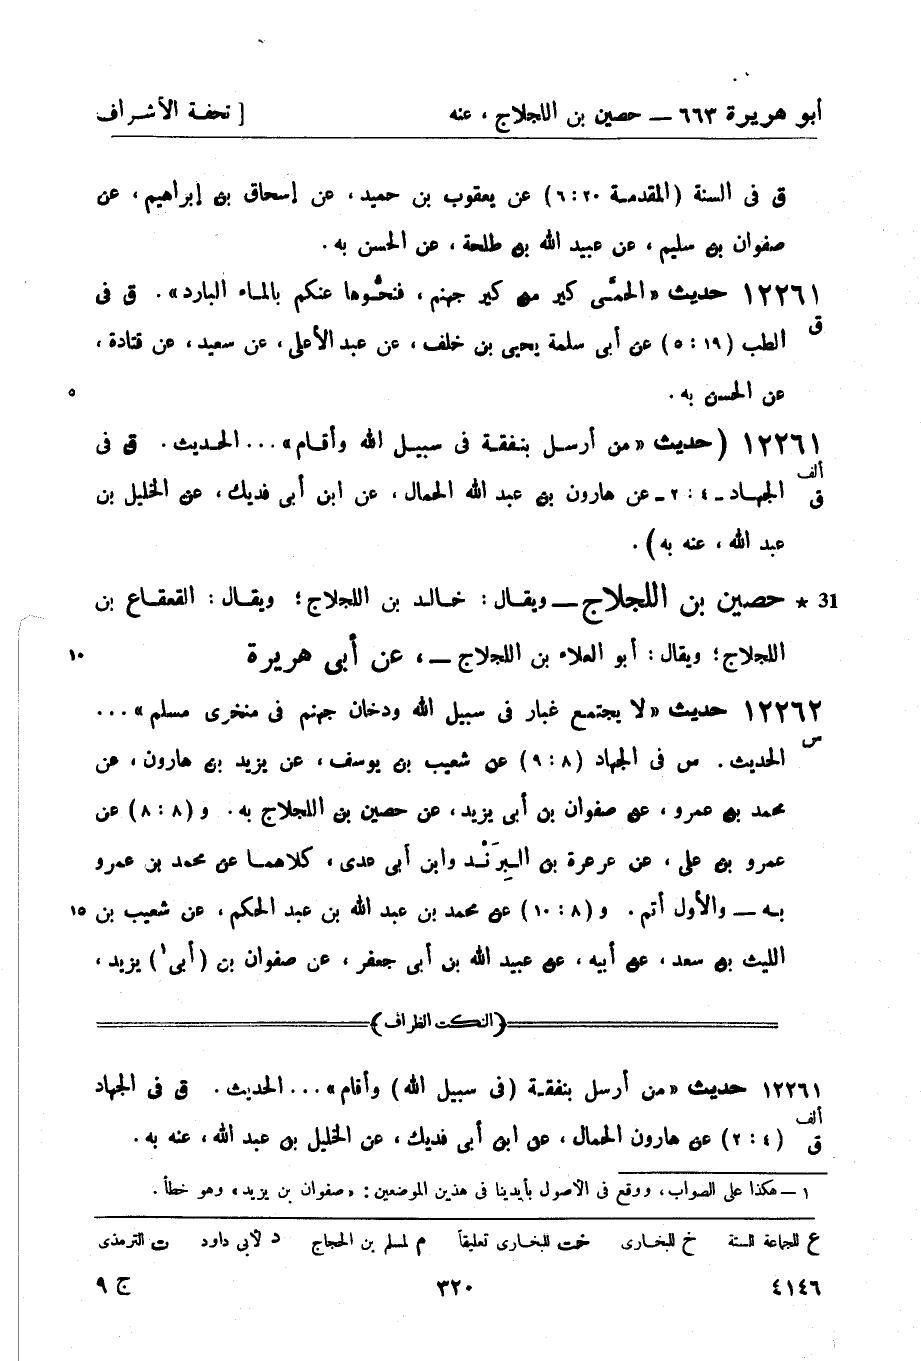 أبو هريرة ٦٦٣ — حصين بن اللجلاج ، عنه [ تحفة الأشراف
ق فى السنة (المقدمة ٢٠ : ٦) عن يعقوب بن حميد ، عن إسحاق بن إبراهيم ، عن
صفوان بن سليم ، عن عبيد الله بن طلحة ، عن الحسن به .
١٢٢٦١ حديث «الحمَّى كير من كير جهنم ، فنحُّوها عنكم بالماء البارد» . ق فى
ق
الطب (١٩ : ٥) عن أبى سلمة يحيى بن خلف ، عن عبد الأعلى ، عن سعيد ، عن قتادة ،
عن الحسن به . ٥
١٢٢٦١ (حديث «من أرسل بنفقة فى سبيل الله وأقام» ... الحديث . ق فى
ألف
ق
الجهاد ـ ٤ : ٢ ـ عن هارون بن عبد الله الحمال ، عن ابن أبى فديك ، عن الخليل بن
عبد الله ، عنه به) .
31 ★ حصين بن اللجلاج — ويقال : خالد بن اللجلاج ؛ ويقال : القعقاع بن
اللجلاج ؛ ويقال : أبو العلاء بن اللجلاج — ، عن أبى هريرة ١٠
١٢٢٦٢ حديث «لا يجتمع غبار فى سبيل الله ودخان جهنم فى منخرى مسلم» ...
س
الحديث . س فى الجهاد (٨ : ٩) عن شعيب بن يوسف ، عن يزيد بن هارون ، عن
محمد بن عمرو ، عن صفوان بن أبى يزيد ، عن حصين بن اللجلاج به . و (٨ : ٨) عن
عمرو بن على ، عن عرعرة بن البِرَنْد وابن أبى عدى ، كلاهما عن محمد بن عمرو
به — والأول أتم . و (٨ : ١٠) عن محمد بن عبد الله بن عبد الحكم ، عن شعيب بن ١٥
الليث بن سعد ، عن أبيه ، عن عبيد الله بن أبى جعفر ، عن صفوان بن (أبى١) يزيد ،
(النكت الظراف)
١٢٢٦١ حديث «من أرسل بنفقة (فى سبيل الله) وأقام» ... الحديث . ق فى الجهاد
ألف
ق
(٤ : ٢) عن هارون الحمال ، عن ابن أبى فديك ، عن الخليل بن عبد الله ، عنه به .
١ — هكذا على الصواب ، ووقع فى الأصول بأيدينا فى هذين الموضعين : «صفوان بن يزيد» وهو خطأ .
ع للجماعة الستة خ للبخارى خت للبخارى تعليقاً م لمسلم بن الحجاج د لأبى داود ت الترمذى
٤١٤٦ ٣٢٠ ج ٩